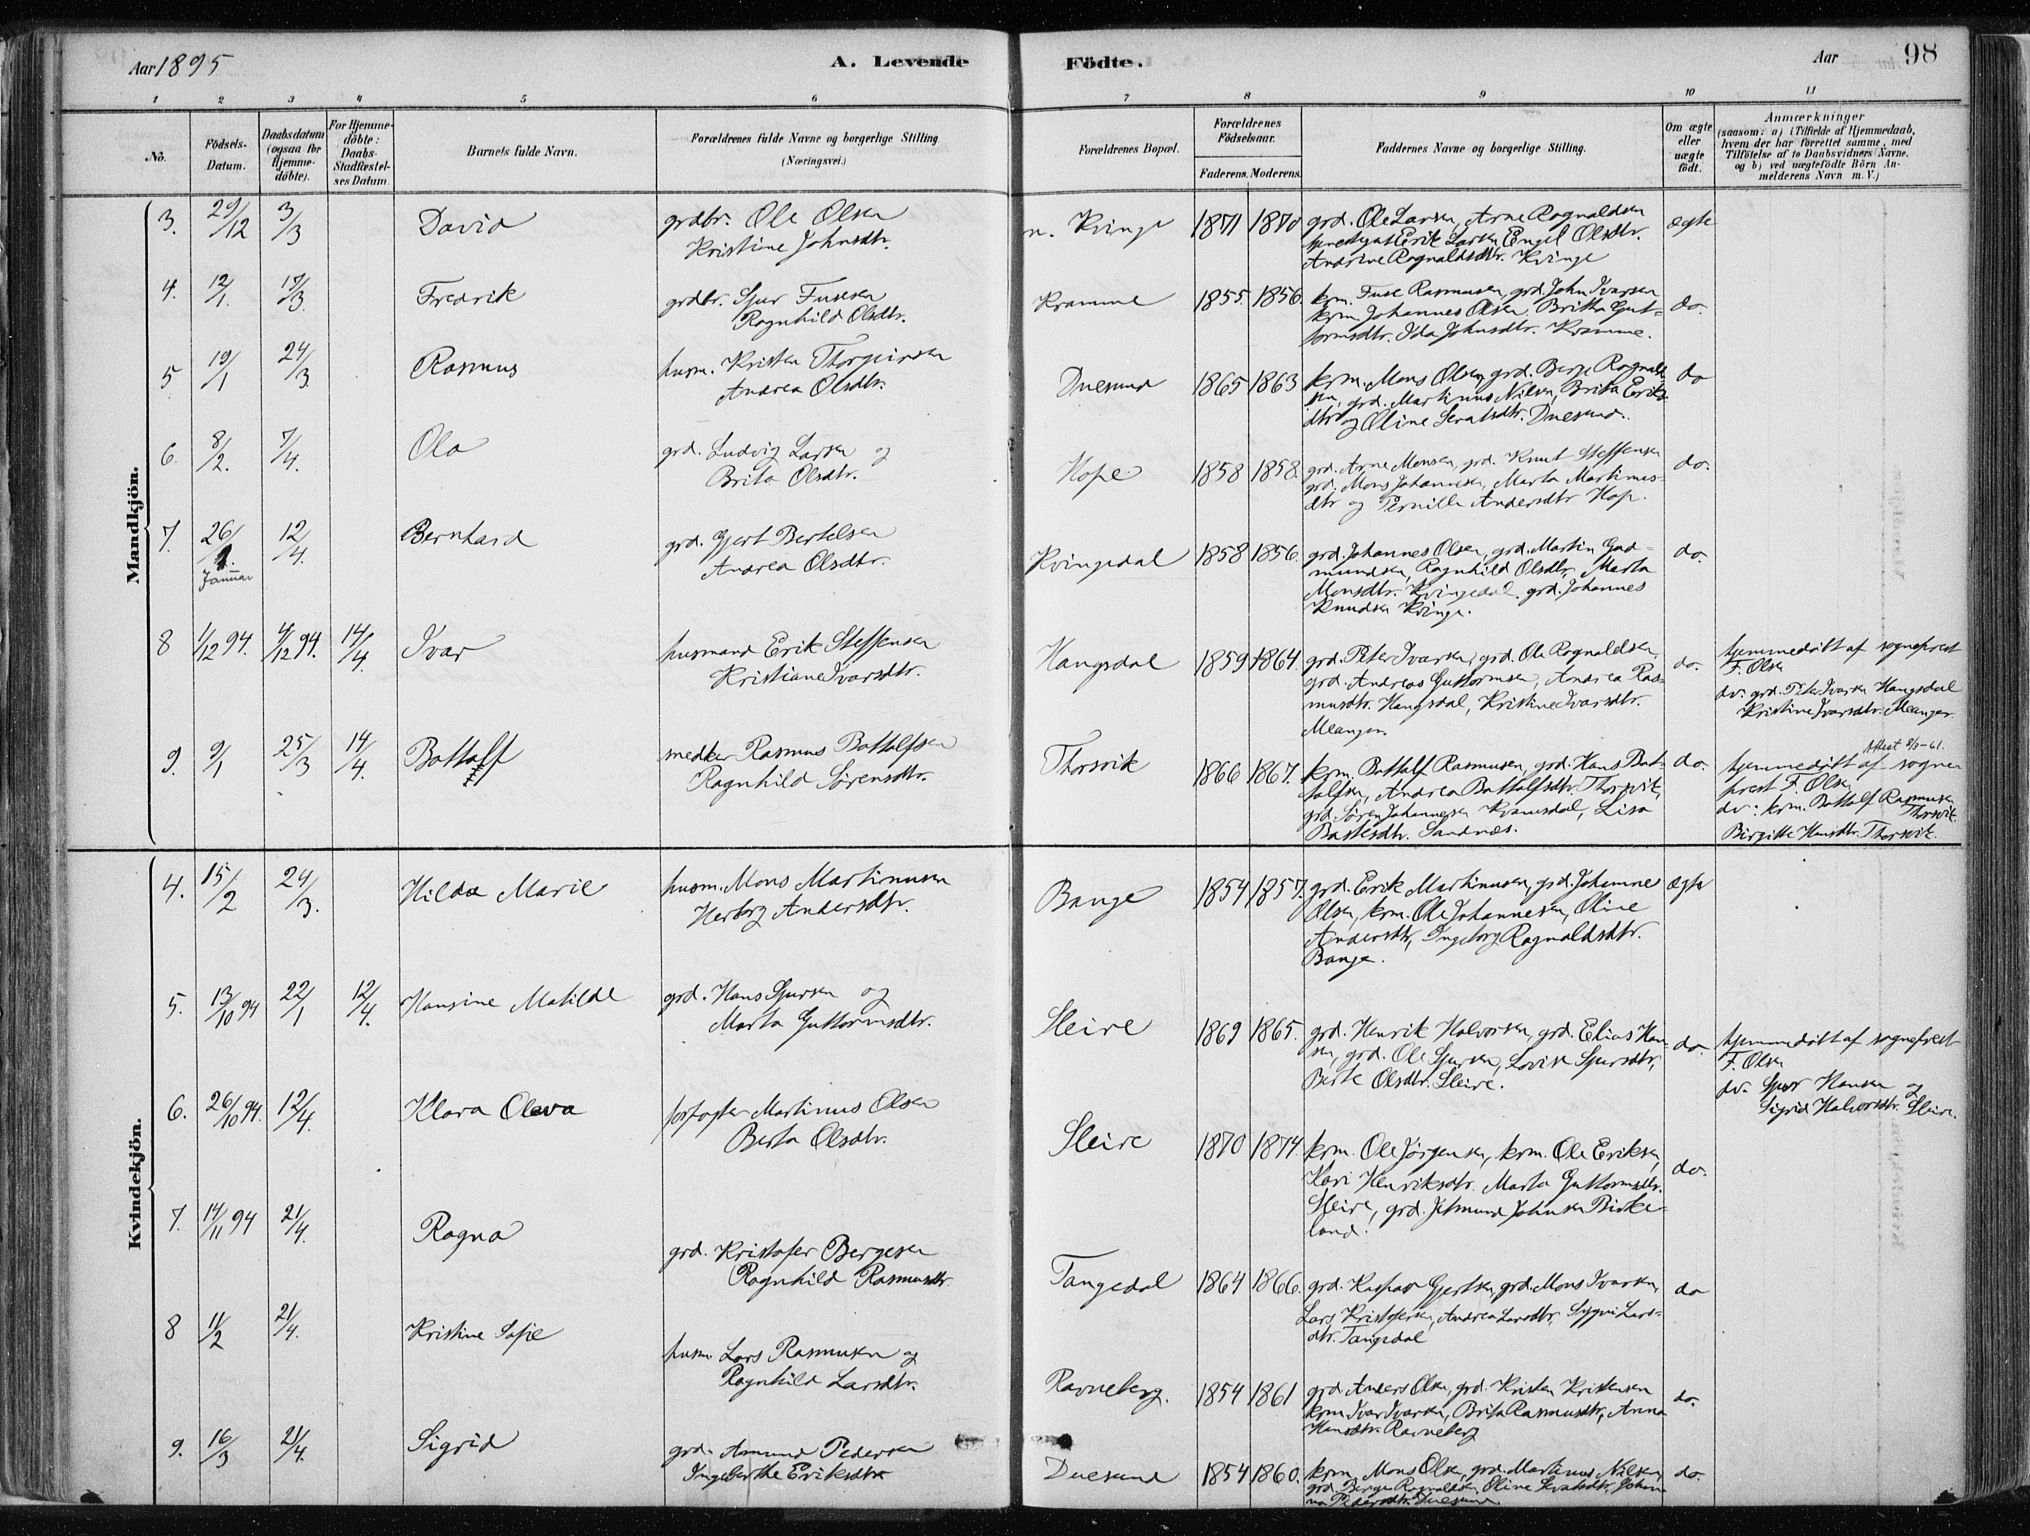 Aar 1895
A. Levende
Födte.
Aar
98
1 2 3 4 5 6 7 8 9 10 11
No.
Födsels-
Datum.
Daabsdatum
(ogsaa for
Hjemme-
döbte).
For Hjemme-
döbte:
Daabs-
Stadfæstel-
ses Datum.
Barnets fulde Navn.
Forældrenes fulde Navne og borgerlige Stilling
(Næringsvei.)
Forældrenes Bopæl.
Forældrenes
Födselsaar.
Faderens. Moderens.
Faddernes Navne og borgerlige Stilling.
Om ægte
eller
uægte
födt.
Anmærkninger
(saasom: a) i Tilfælde af Hjemmedaab,
hvem der har forrettet samme, med
Tilföielse af to Daabsvidners Navne,
og b) ved uægtefödte Börn An-
melderens Navn m. V.)
Mandkjön.
3. 29/12 3/3 David
grdbr. Ole Olsen
Kristine Johnsdtr.
n. Kvinge 1871 1870
grd. Ole Larsen, Arne Ragnaldsen
Erik Larsen, Engel Olsdtr.
Andrine Ragnaldsdtr. Kvinge
ægte
4. 12/1. 17/3. Fredrik
grdbr. Sjur Fusesen
Ragnhild Olsdtr.
Kramme 1855. 1856.
krm. Fuse Rasmusen, grd. John Ivarsen
krm. Johannes Olsen, Britha Gut-
tormsdtr. Ida Johnsdtr. Kramme.
do.
5 19/1 24/3 Rasmus
husm. Kristen Thorgeirsen
Andrea Olsdtr.
Duesund 1865 1863
krm. Mons Olsen, grd. Berge Ragnald-
sen, grd. Martinus Nilsen, Brita Eriks-
dtr og Oline Seratsdtr. Duesund.
do
6. 8/2. 7/4. Ola
grd. Ludvig Larsen og
Brita Olsdtr.
Hope 1858 1858.
grd. Arne Monsen, grd. Knut Steffensen
grd. Mons Johannesen, Marta Martinus-
dtr og Pernille Andersdtr Hop.
do.
7. 26/1. Januar 12/4. Bernhard
grd. Gjert Bertelsen
Andrea Olsdtr.
Kvingedal 1858 1856.
grd. Johannes Olsen, grd. Martin Gud-
mundsen, Ragnhild Olsdtr, Marta
Monsdtr. Kvingedal. grd. Johannes
Knudsen Kvinge.
do.
8 1/12 94. 4/12 94. 14/4. Ivar
husmand Erik Steffensen
Kristiane Ivarsdtr.
Haugsdal 1859 1864.
grd. Peter Ivarsen, grd. Ole Ragnaldsen,
grd. Andreas Guttormsen, Andrea Ras-
musdtr. Haugsdal, Kristine Ivarsdtr.
Meanger.
do.
hjemmedöbt af sogneprest
F. Olsen
dv. grd. Peter Ivarsen Haugsdal
Kristine Ivarsdtr. Meanger
9. 9/1 25/3 14/4. Bottolf
medker Rasmus Bottolfsen
Ragnhild Sørensdtr.
Thorsvik 1866 1867.
krm. Bottolf Rasmusen, grd. Hans Bot-
tolfsen, Andrea Bottolfsdtr. Thorsvik,
grd. Sören Johannesen Kvamsdal, Lisa
Bastesdtr. Sandnæs.
do.
hjemmedöbt af sogne-
prest F. Olsen
dv: krm. Bottolf Rasmusen
Thorsvik.
Birgitte Hansdtr. Thorsvik.
Kvindekjön.
4. 15/2 24/3. Hilda Marie
husm. Mons Martinusen
Herborg Andersdtr.
Bange 1854 1857.
grd. Erik Martinusen, grd. Johannes
Olsen, krm. Ole Johannesen, Oline
Andersdtr, Ingeborg Ragnaldsdtr.
Bange.
ægte
5. 13/10 94 22/1 12/4. Hansine Matilde
grd. Hans Sjursen og
Marta Guttormsdtr.
Sleire 1869 1865.
grd. Henrik Halvorsen, grd. Elias Han-
sen, grd. Ole Sjursen, Lovise Sjursdtr,
Berte Olsdtr. Sleire.
do.
hjemmedöbt af sogneprest
F. Olsen
dv. Sjur Hansen og
Sigrid Halvorsdtr. Sleire.
6. 26/10 94. 12/4. Klara Oleva
Martinus Olsen
Berta Olsdtr.
Sleire 1870 1874.
krm. Ole Jörgensen, krm. Ole Eriksen,
Kari Henriksdtr. Marta Guttormsdtr.
Sleire, grd. Jetmund Johnsen Birke-
land.
do.
7. 14/11 94 21/4. Ragna
grd. Kristofer Bergesen
Ragnhild Rasmusdtr.
Tangedal 1864 1866.
grd. Kaspar Gjertsen, grd. Mons Ivarsen,
Lars Kristofersen, Andrea Larsdtr, Lars-
dtr. Tangedal
do
8 11/2 21/4. Kristine Sofie
husm. Lars Rasmusen og
Ragnhild Larsdtr.
Ravneberg. 1854 1861
grd. Anders Olsen, grd. Kristen Kristensen
krm. Ivar Ivarsen, Brita Rasmusdtr, Anna
Hansdtr. Ravneberg
do.
9. 16/3 21/4. Sigrid
grd. Amund Pedersen
Ingeborthe Eriksdtr
Duesund 1854 1860.
krm. Mons Olsen, grd. Martinus Nilsen,
grd. Berge Ragnaldsen, Oline Seratsdtr, Johan-
na Pedersdtr. Duesund
do.